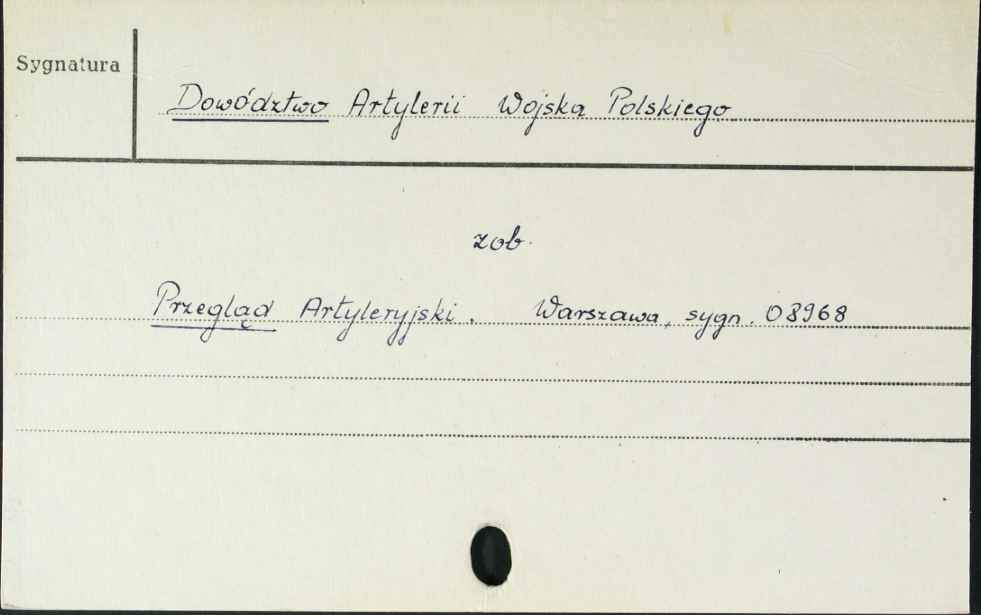 Sygnatura
Dowództwo Artylerii Wojska Polskiego
zob.
Przegląd Artyleryjski. Warszawa, sygn. 08968